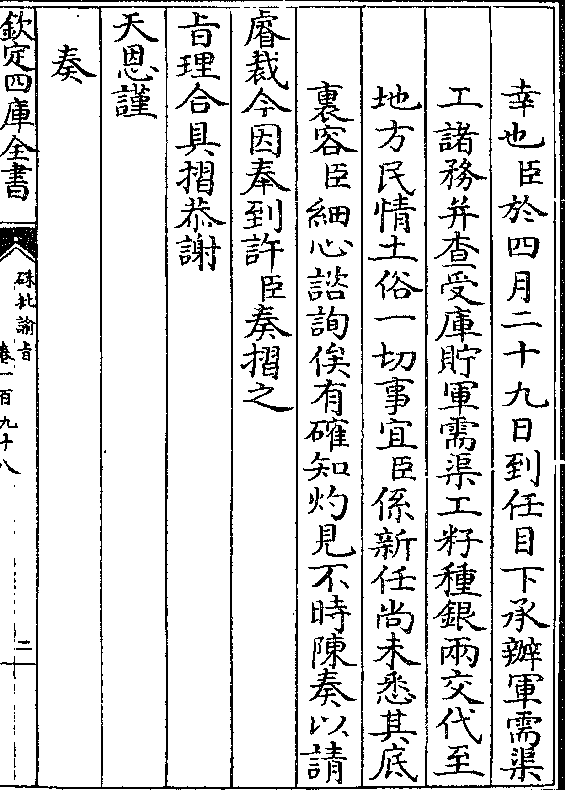 幸也臣於四月二十九日到任目下承辦軍需渠
工諸務并查受庫貯軍需渠工籽種銀兩交代至
地方民情土俗一切事宜臣係新任尚未悉其底
裏容臣細心諮詢俟有確知灼見不時陳奏以請
睿裁今因奉到許臣奏摺之
旨理合具摺恭謝
天恩謹
奏
欽定四庫全書
硃批諭旨
卷一百九十八
二